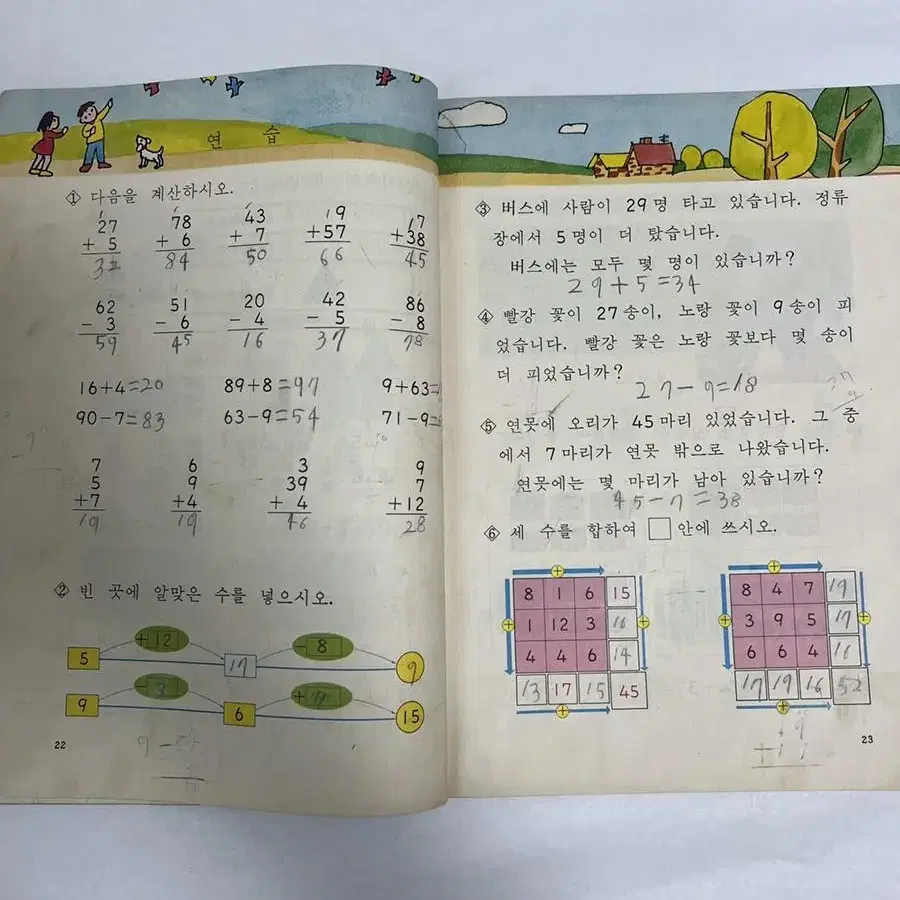 연 습
① 다음을 계산하시오.
27 78 43 19 17
+ 5 + 6 + 7 +57 +38
32 84 50 66 45
62 51 20 42 86
- 3 - 6 - 4 - 5 - 8
59 45 16 37 78
16+4=20 89+8=97 9+63=
90-7=83 63-9=54 71-9=
7 6 3 9
5 9 39 7
+7 +4 + 4 +12
19 19 46 28
② 빈 곳에 알맞은 수를 넣으시오.
+12 - 8
5 17 9
- 3 +
9 6 15
9 -
22
③ 버스에 사람이 29명 타고 있습니다. 정류
장에서 5명이 더 탔습니다.
버스에는 모두 몇 명이 있습니까?
29+5=34
④ 빨강 꽃이 27송이, 노랑 꽃이 9송이 피
었습니다. 빨강 꽃은 노랑 꽃보다 몇 송이
더 피었습니까?
27-9=18
27
9
⑤ 연못에 오리가 45마리 있었습니다. 그 중
에서 7마리가 연못 밖으로 나왔습니다.
연못에는 몇 마리가 남아 있습니까?
45-7=38
⑥ 세 수를 합하여 □ 안에 쓰시오.
+ +
8 1 6 15 8 4 7 19
1 12 3 16 3 9 5 17
4 4 6 14 6 6 4 16
13 17 15 45 17 19 16 52
+ +
23